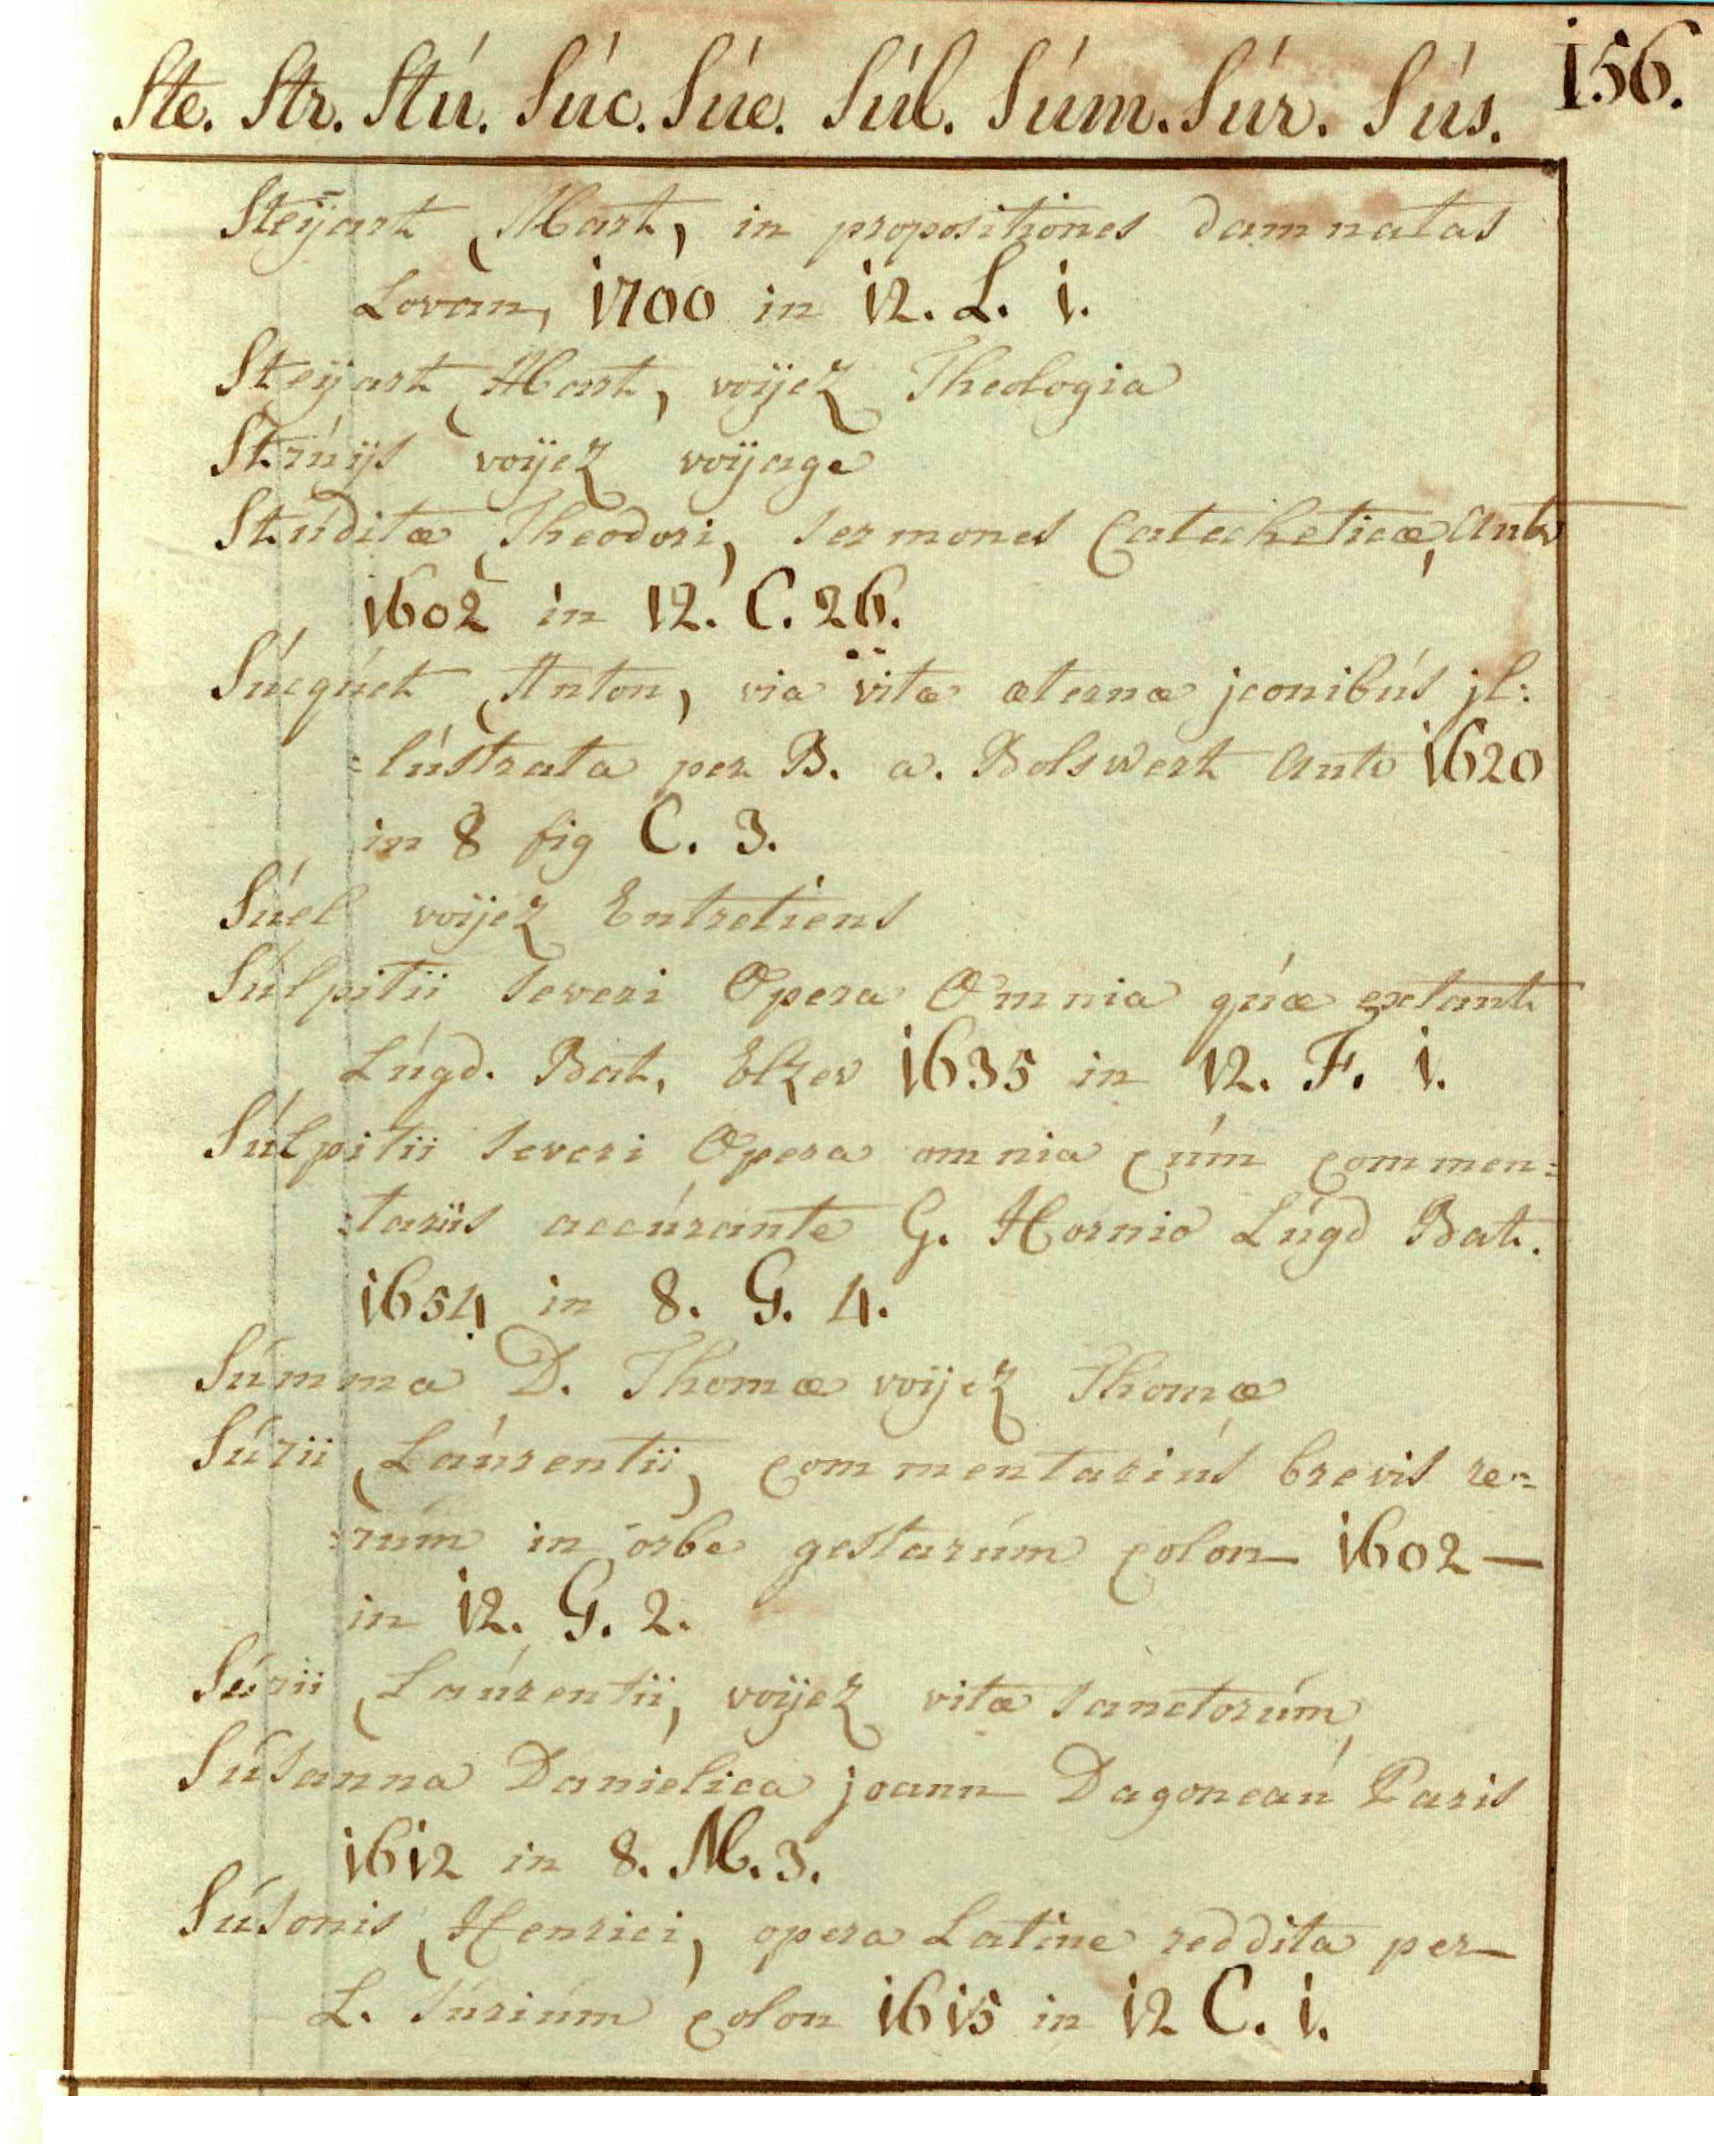 Ste. Str. Stú. Súc. Súe. Súl. Súm. Súr. Sús. 156.
Steÿart (Mart) in propositiones damnatas
Lovan, 1700 in 12. L. 1.
Steÿart (Mart) voÿez Theologia
Strúÿs voÿez voÿage
Stúditæ (Theodori) sermones Catecheticæ, Antv
1602 in 12. C. 26.
Súcqúet (Anton) via vitæ æternæ jconibús jl:
:lústrata per B. a. Bolswert Antv 1620
in 8 fig C. 3.
Súel voÿez Entretiens
Súlpitii Severi Opera Omnia qúæ extant
Lúgd. Bat. Elzev 1635 in 12. F. 1.
Súlpitii Severi Opera omnia cúm commen:
:tariis accúrante G. Hornio Lúgd Bat.
1654 in 8. G. 4.
Súmma D. Thomæ voÿez Thomæ
Súrii (Laúrentii) commentariús brevis re:
:rúm in orbe gestarúm colon 1602 —
in 12. G. 2.
Súrii (Laúrentii) voÿez vitæ sanctorúm
Súsanna Danielica joann Dagoneaú Paris
1612 in 8. M. 3.
Súsonis (Henrici) opera Latine reddita per
L. Súriúm colon 1615 in 12 C. 1.